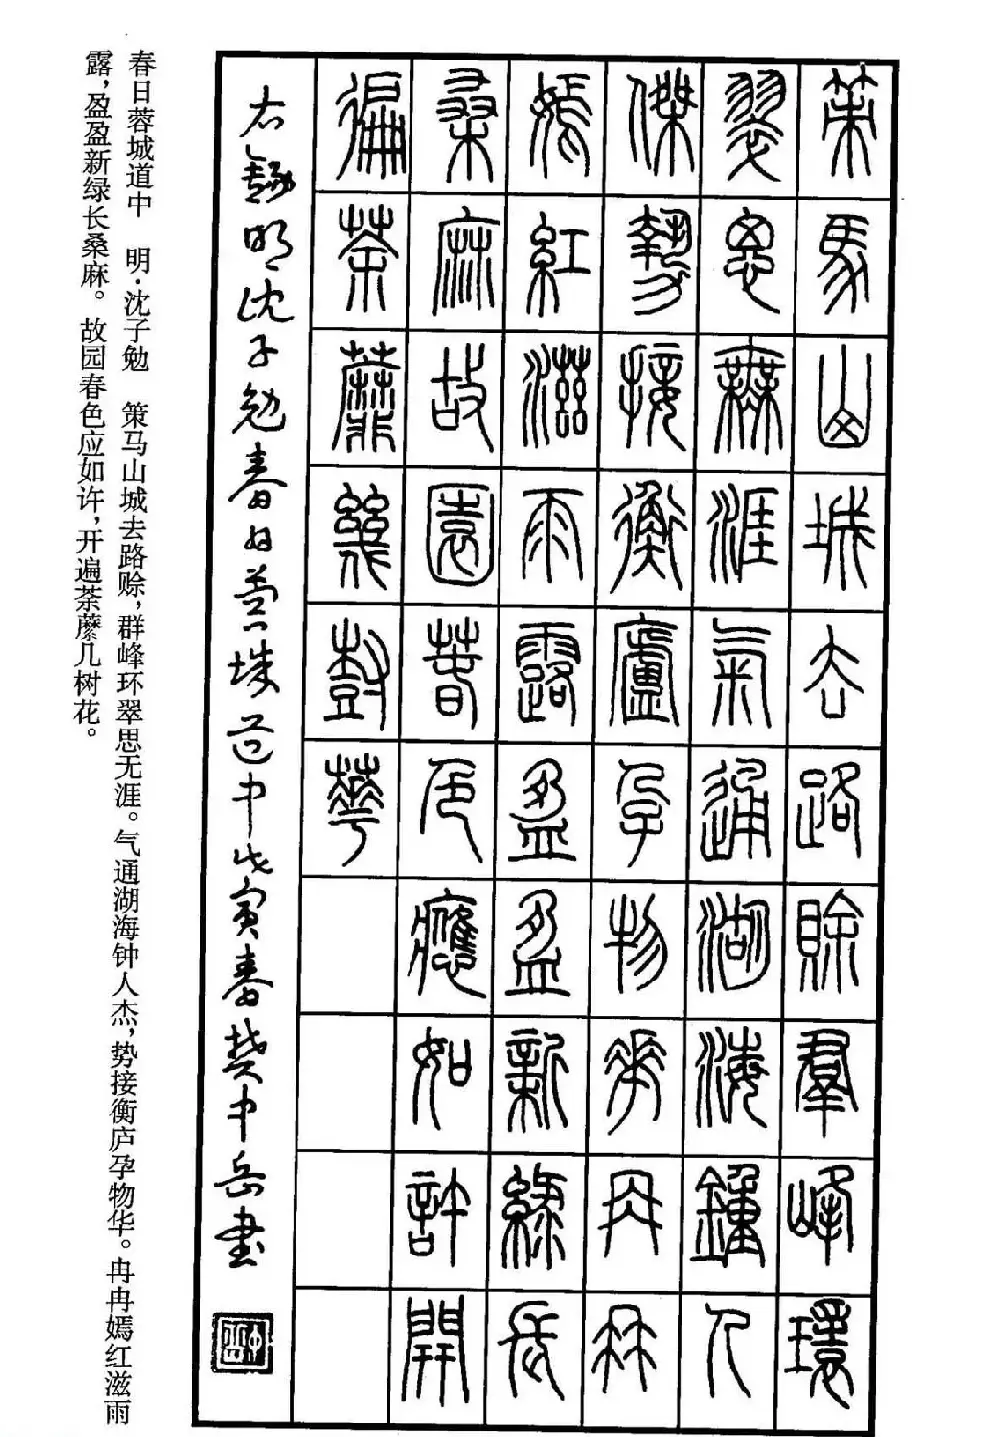 策馬山城去路賒羣峰環
翠思無涯氣通湖海鍾人
傑勢接衡廬孕物華冉冉
嫣紅滋雨露盈盈新綠長
桑麻故園春色應如許開
徧荼蘼幾尌華
右録明沈子勉春日蓉城道中戊寅春樊中岳書
中岳
春日蓉城道中　明·沈子勉　策马山城去路赊，群峰环翠思无涯。气通湖海钟人杰，势接衡庐孕物华。冉冉嫣红滋雨
露，盈盈新绿长桑麻。故园春色应如许，开遍荼蘼几树花。